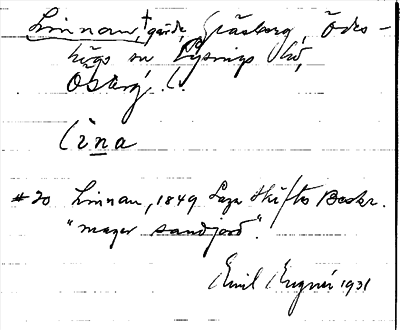 Linnan, † gärde, Gräsberg, Ödes-
högs sn Lysings hd,
Östergl.
Lina
#20 Linnan, 1849 Laga Skiftes Beskr.
"mager sandjord".
Emil Engnér 1931